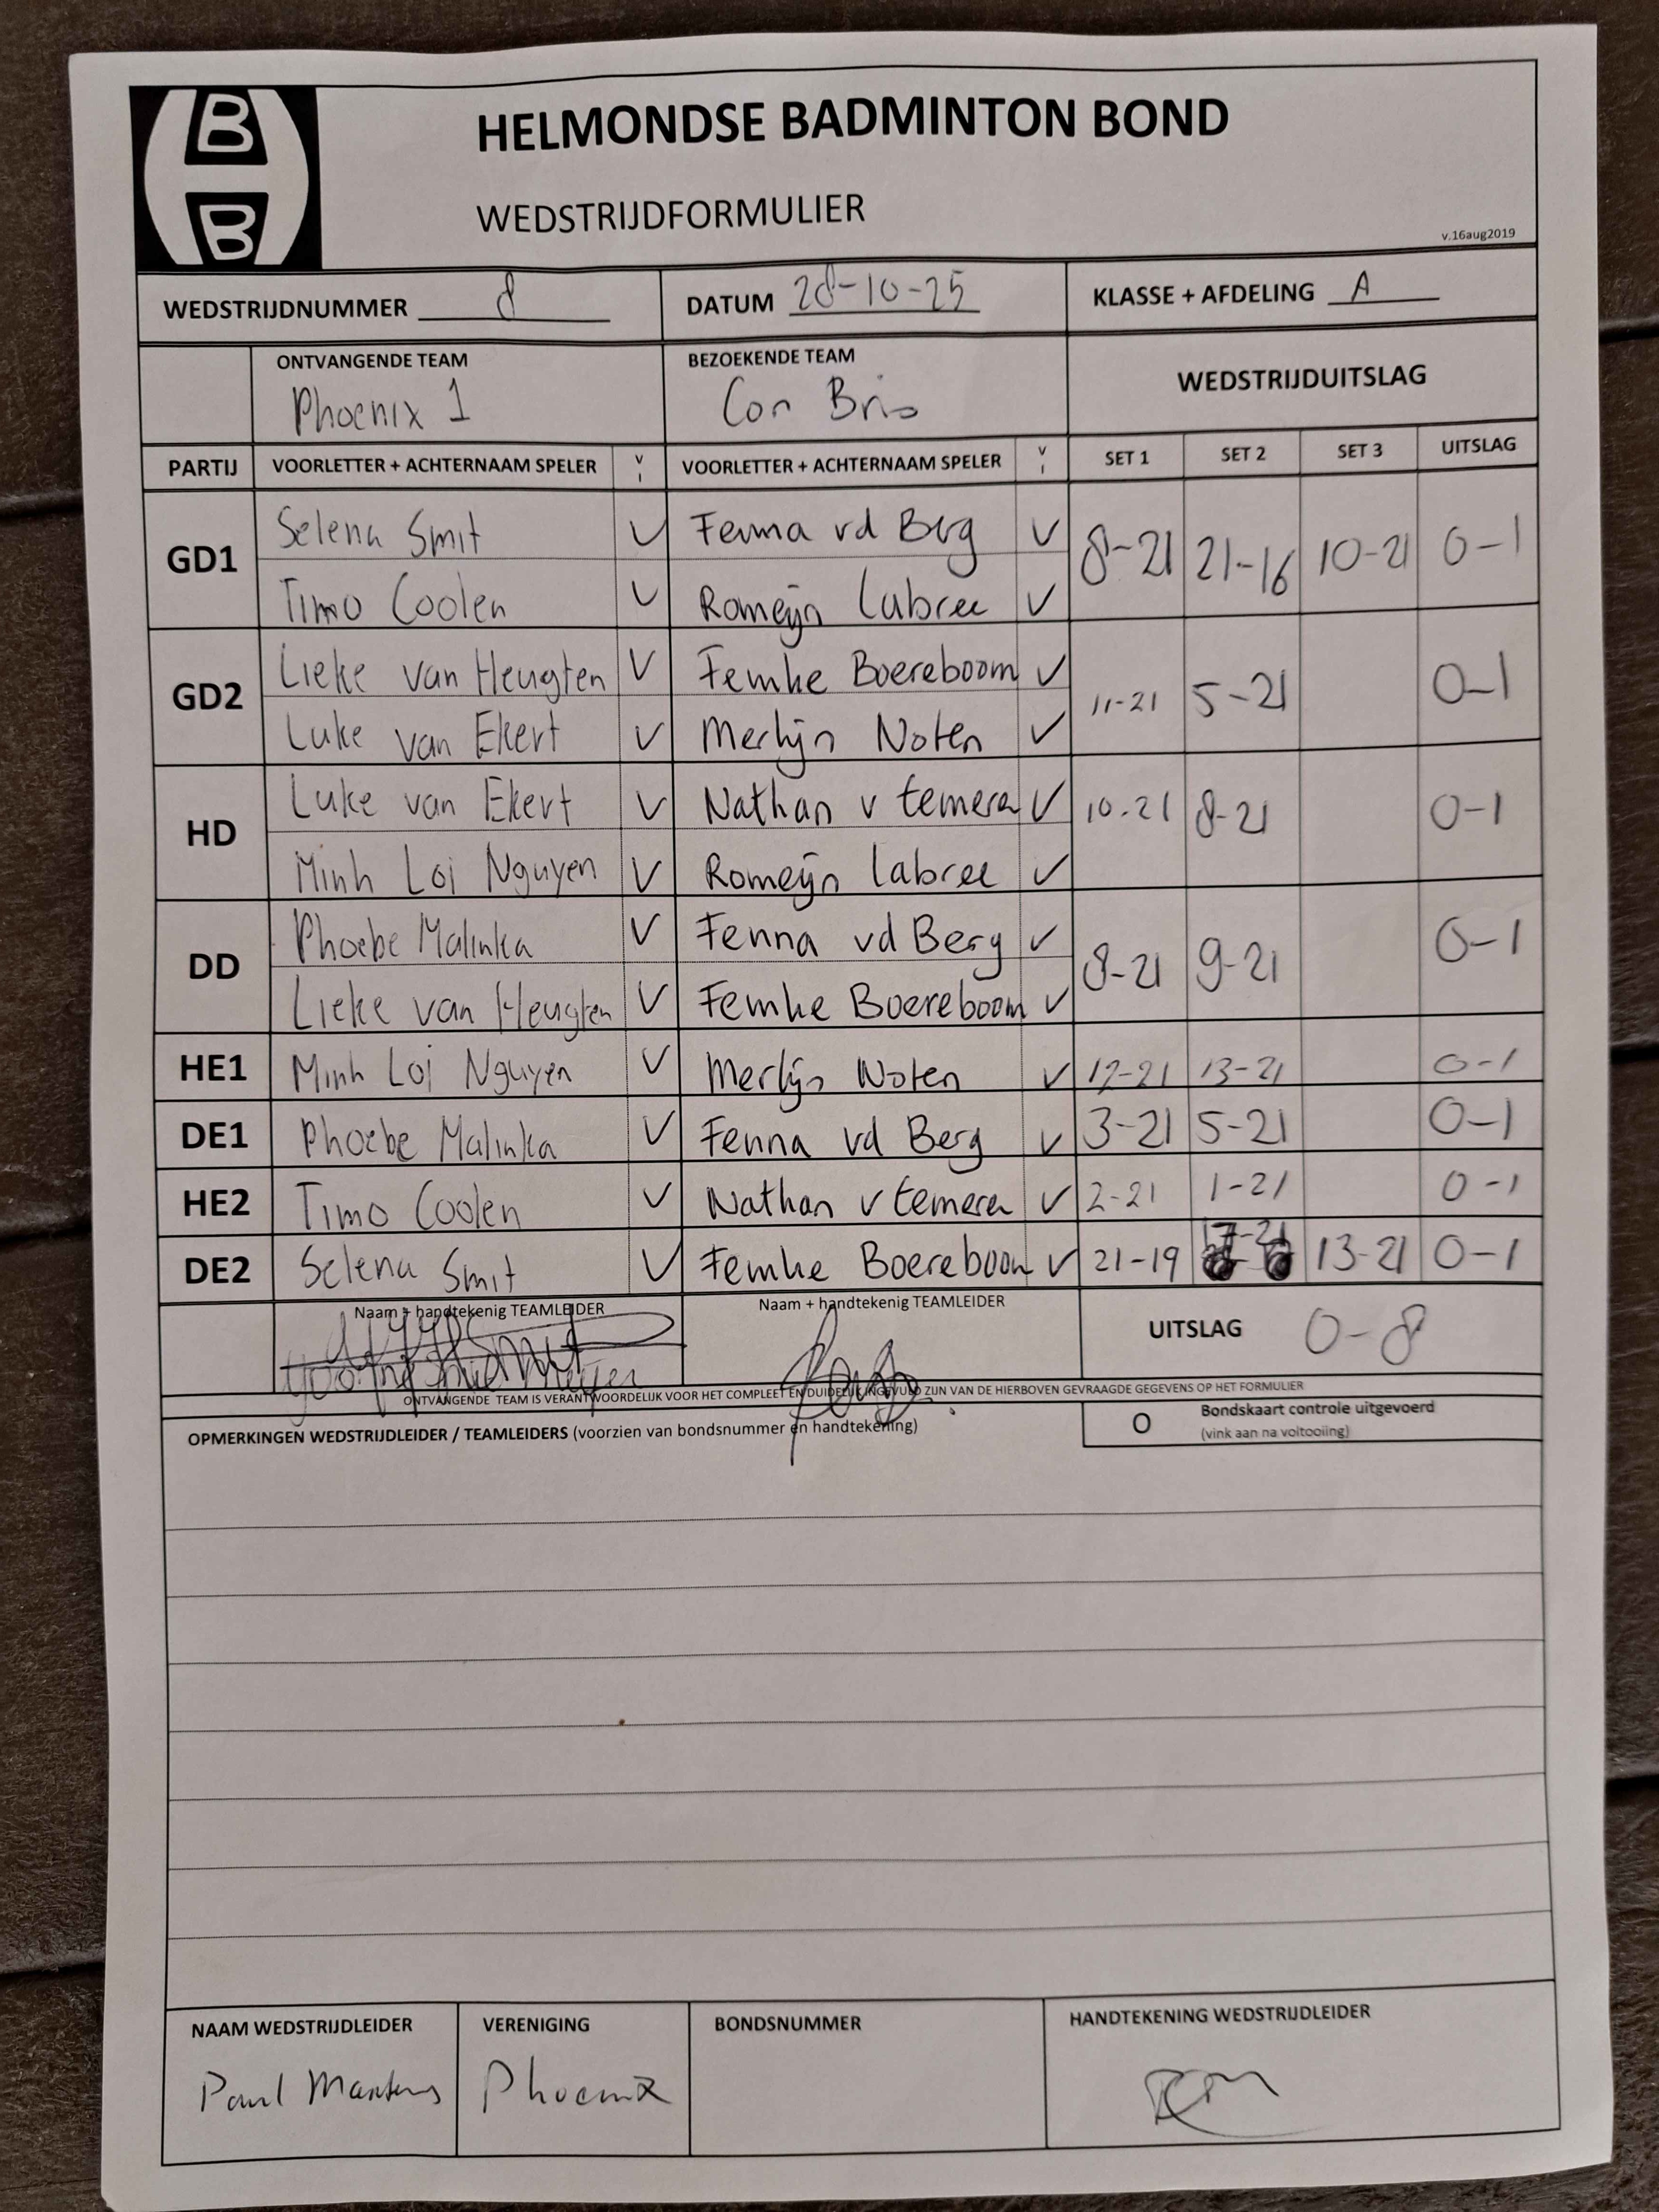 B
B
HELMONDSE BADMINTON BOND
WEDSTRIJDFORMULIER
v.16aug2019
WEDSTRIJDNUMMER 8 DATUM 28-10-25 KLASSE + AFDELING A
ONTVANGENDE TEAM BEZOEKENDE TEAM WEDSTRIJDUITSLAG
Phoenix 1 Con Brio
PARTIJ VOORLETTER + ACHTERNAAM SPELER V I VOORLETTER + ACHTERNAAM SPELER V I SET 1 SET 2 SET 3 UITSLAG
GD1 Selena Smit V vd Berg V 8-21 21-16 10-21 0-1
Timo Coolen V Romeijn Labree V
GD2 Lieke van Heugten V Femke Boereboom V 11-21 5-21 0-1
Luke van Ekert V Merlijn Noten V
HD Luke van Ekert V Nathan v temeren V 10-21 8-21 0-1
Minh Loi Nguyen V Romeijn labree V
DD Phoebe Malinka V Fenna vd Berg V 8-21 9-21 0-1
Lieke van Heugten V Femke Boereboom V
HE1 Minh Loi Nguyen V Merlijn Noten V 12-21 13-21 0-1
DE1 Phoebe Malinka V Fenna vd Berg V 3-21 5-21 0-1
HE2 Timo Coolen V Nathan v temeren V 2-21 1-21 0-1
DE2 Selena Smit V Femke Boereboom V 21-19 17-21 13-21 0-1
Naam + handtekenig TEAMLEIDER Naam + handtekenig TEAMLEIDER UITSLAG 0-8
ONTVANGENDE TEAM IS VERANTWOORDELIJK VOOR HET COMPLEET EN DUIDELIJK INGEVULD ZIJN VAN DE HIERBOVEN GEVRAAGDE GEGEVENS OP HET FORMULIER
OPMERKINGEN WEDSTRIJDLEIDER / TEAMLEIDERS (voorzien van bondsnummer en handtekening)
O Bondskaart controle uitgevoerd
(vink aan na voltooiing)
NAAM WEDSTRIJDLEIDER VERENIGING BONDSNUMMER HANDTEKENING WEDSTRIJDLEIDER
Paul Martens Phoenix